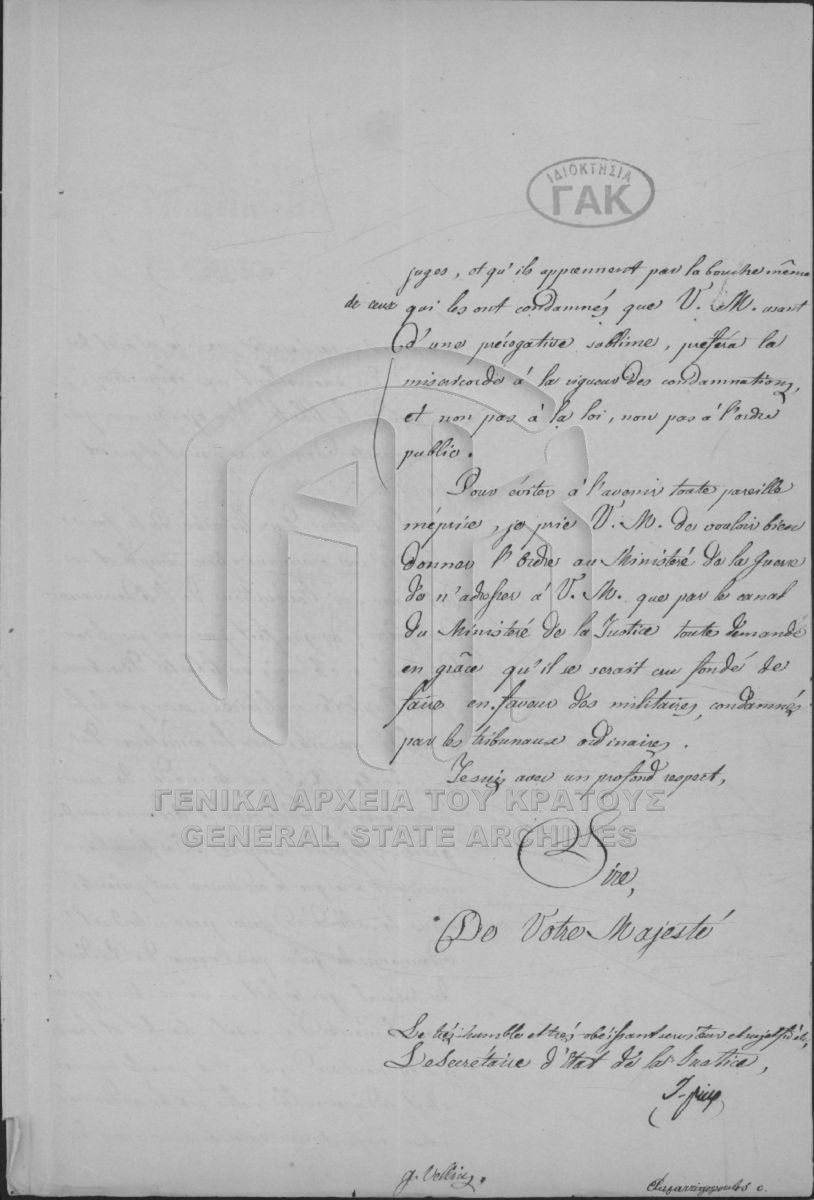 ΙΔΙΟΚΤΗΣΙΑ
ΓΑΚ
juges, et qu'ils apprennent par la bouche même
de ceux qui les ont condamnés que V. M. usant
d'une prérogative sublime, préféra la
misericorde à la rigueur des condamnations,
et non pas à la loi, non pas à l'ordre
public.
Pour éviter à l'avenir toute pareille
méprise, je prie V. M. de vouloir bien
donner l'Ordre au Ministère de la Guerre
de n'adresser à V. M. que par le canal
du Ministère de la Justice toute demande
en grâce qu'il se serait cru fondé de
faire en faveur des militaires, condamnés
par les tribunaux ordinaires.
Je suis avec un profond respect,
ΓΕΝΙΚΑ ΑΡΧΕΙΑ ΤΟΥ ΚΡΑΤΟΥΣ
GENERAL STATE ARCHIVES
Sire,
De Votre Majesté
Le très humble et très obéissant serviteur et sujet fidèle,
Le Secrétaire d'Etat de la Justice,